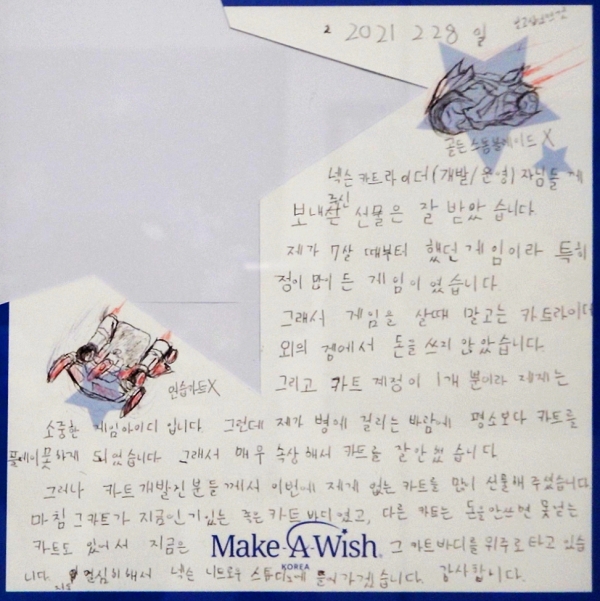 2021 2 28 일
골든 스톰블레이드 X
넥슨 카트라이더(개발/운영)자님들께
보내주신 선물은 잘 받았습니다
제가 7살 때부터 했던 게임이라 특히
정이 많이 든 게임이였습니다.
그래서 게임을 살때 말고는 카트라이더
외의 겜에서 돈을 쓰지 않았습니다.
그리고 카트 계정이 1개 뿐이라 제게는
연습카트X
소중한 게임아이디 입니다. 그런데 제가 병에 걸리는 바람에 평소보다 카트를
플레이못하게 되었습니다 그래서 매우 속상해서 카트를 잘안했습니다
그러나 카트개발진분들께서 이번에 제게 없는 카트를 많이 선물해주셨습니다
마침 그카트가 지금인기있는 카트바디였고, 다른 카트는 돈을안쓰면 못얻는
카트도 있어서 지금은 그 카트바디를 위주로 타고 있습
Make-A-Wish®
KOREA
니다. 열심히해서 넥슨 스튜디오에 들어가겠습니다. 감사합니다.